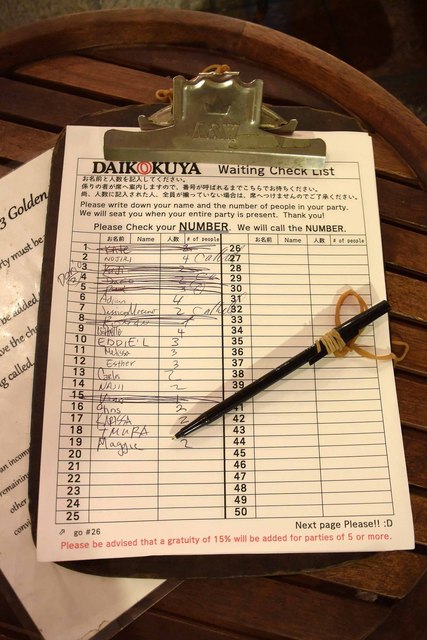 DAIKOKUYA Waiting Check List
お名前と人数を記入してください。
係りの者が席へ案内しますので、番号が呼ばれるまでこちらでお待ちください。
尚、人数に記入された人、全員が揃っていない場合は、席へつけませんのでご了承ください。
Please write down your name and the number of people in your party.
We will seat you when your entire party is present. Thank you!
Please Check your NUMBER. We will call the NUMBER.
お名前 Name 人数 # of people お名前 Name 人数 # of people
1 26
2 NOJIRI 4 27
3 28
4 29
5 30
6 Adrian 4 31
7 2 32
8 33
9 4 34
10 EDDIE L 3 35
11 Melissa 3 36
12 Esther 3 37
13 Carlos 38
14 NAJI 2 39
15
16 Chris 2 41
17 LARISSA 2 42
18 IMURA 43
19 Maggie 2 44
20 45
21 46
22 47
23 48
24 49
25 50
go #26
Next page Please!! :D
Please be advised that a gratuity of 15% will be added for parties of 5 or more.
3 Golden
rty must be
be added
ve the
ng called
an incom
remaining
other